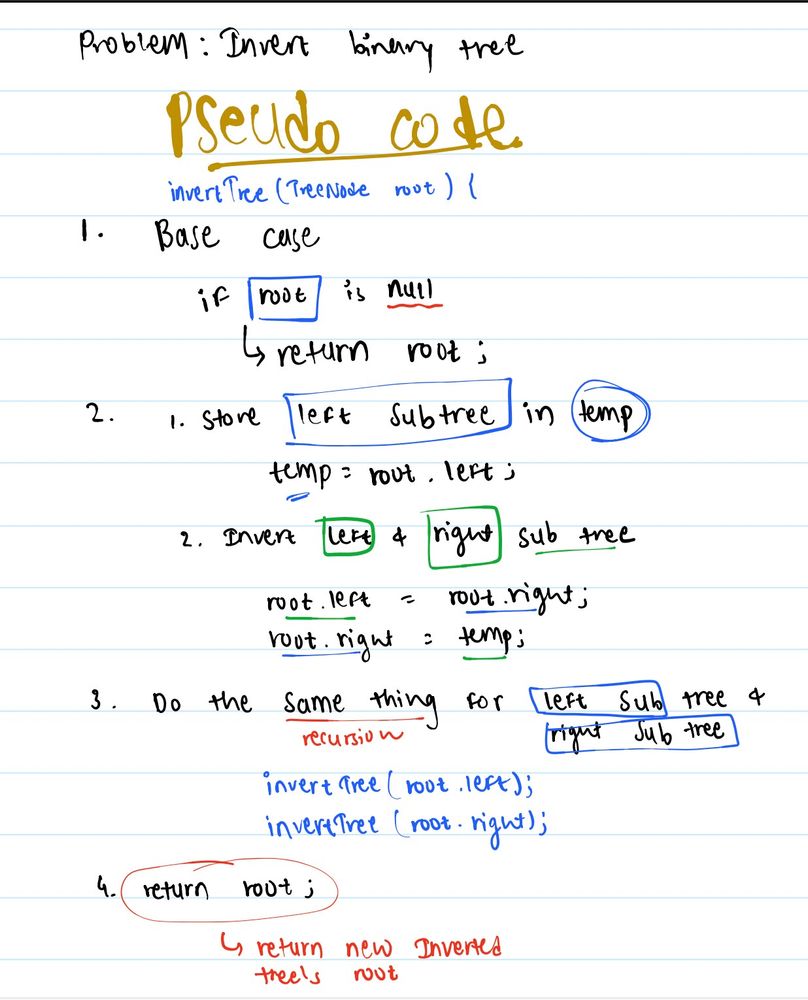 Problem : Invert binary tree
Pseudo code
invertTree (TreeNode root) {
1. Base case
if root is null
↳ return root ;
2. 1. Store left Subtree in temp
temp = root . left ;
2. Invert left & right sub tree
root . left = root . right ;
root . right = temp ;
3. Do the same thing for left Sub tree &
recursion right Sub tree
invertTree ( root . left ) ;
invertTree ( root . right ) ;
4. return root ;
↳ return new Inverted
tree's root